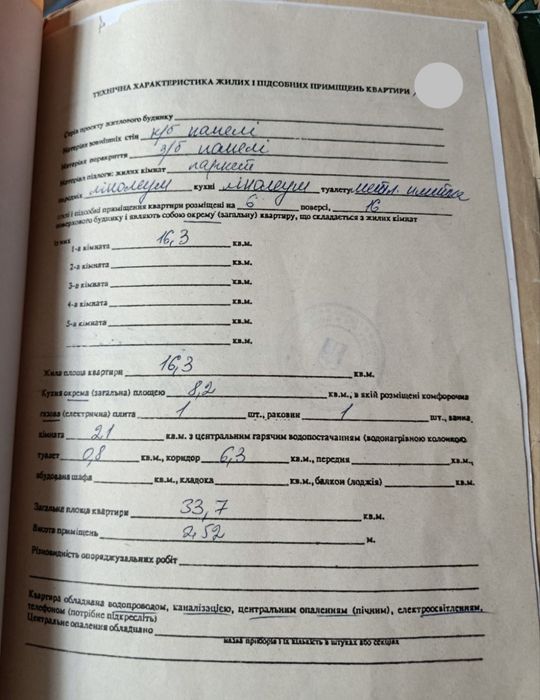 ТЕХНІЧНА ХАРАКТЕРИСТИКА ЖИЛИХ І ПІДСОБНИХ ПРИМІЩЕНЬ КВАРТИРИ
Серія проекту житлового будинку
Матеріал зовнішніх стін к/б панелі
Матеріал перекриття з/б панелі
Матеріал підлоги: жилих кімнат паркет
передніх лінолеум кухні лінолеум туалету метл. плитка
Жилі і підсобні приміщення квартири розміщені на 6 поверсі, 16
поверхового будинку і являють собою окрему (загальну) квартиру, що складається з жилих кімнат
Із них
1-а кімната 16,3 кв.м.
2-а кімната кв.м.
3-а кімната кв.м.
4-а кімната кв.м.
5-а кімната кв.м.
кв.м.
Жила площа квартири 16,3 кв.м.
Кухня окрема (загальна) площею 8,2 кв.м., в якій розміщені комфорочна
газова (електрична) плита 1 шт., раковин 1 шт., ванна
кімната 21 кв.м. з центральним гарячим водопостачанням (водонагрівною колонкою
туалет 0,8 кв.м., коридор 6,3 кв.м., передня кв.м.,
вбудована шафа кв.м., кладока кв.м., балкон (лоджія) кв.м.
Загальна площа квартири 33,7 кв.м.
Висота приміщень 2,52 м.
Різновидність опоряджувальних робіт
Квартира обладнана водопроводом, каналізацією, центральним опаленням (пічним), електроосвітленням,
телефоном (потрібне підкресліть)
Центральне опалення обладнано
назва приборів і їх кількість в штуках або секціях